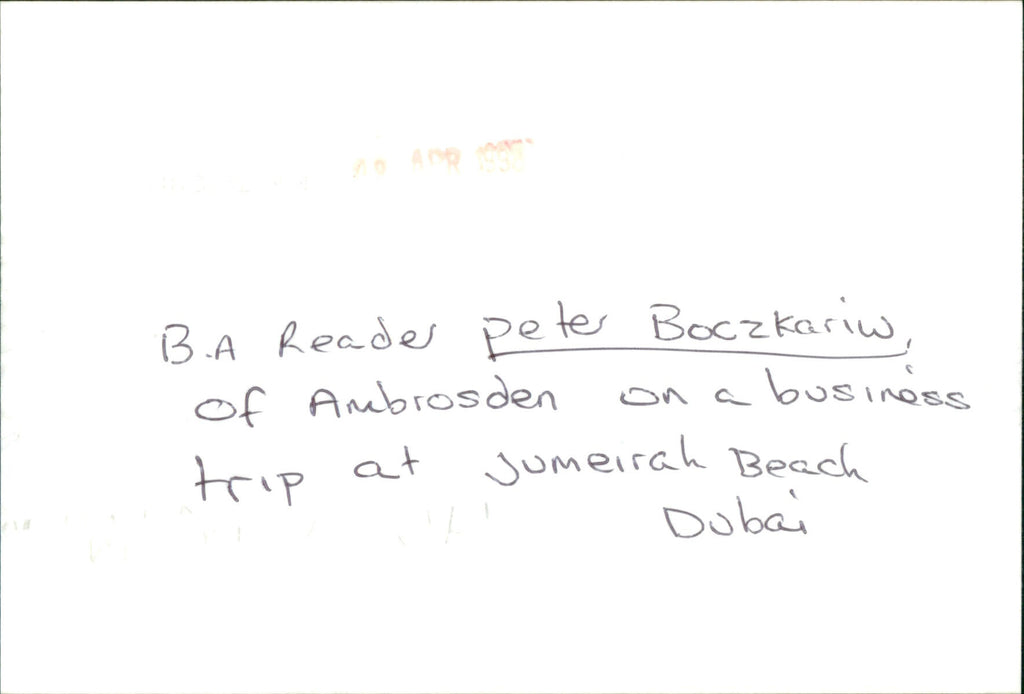 APR
B.A Reader Peter Boczkariw,
of Ambrosden on a business
trip at Jumeirah Beach
Dubai